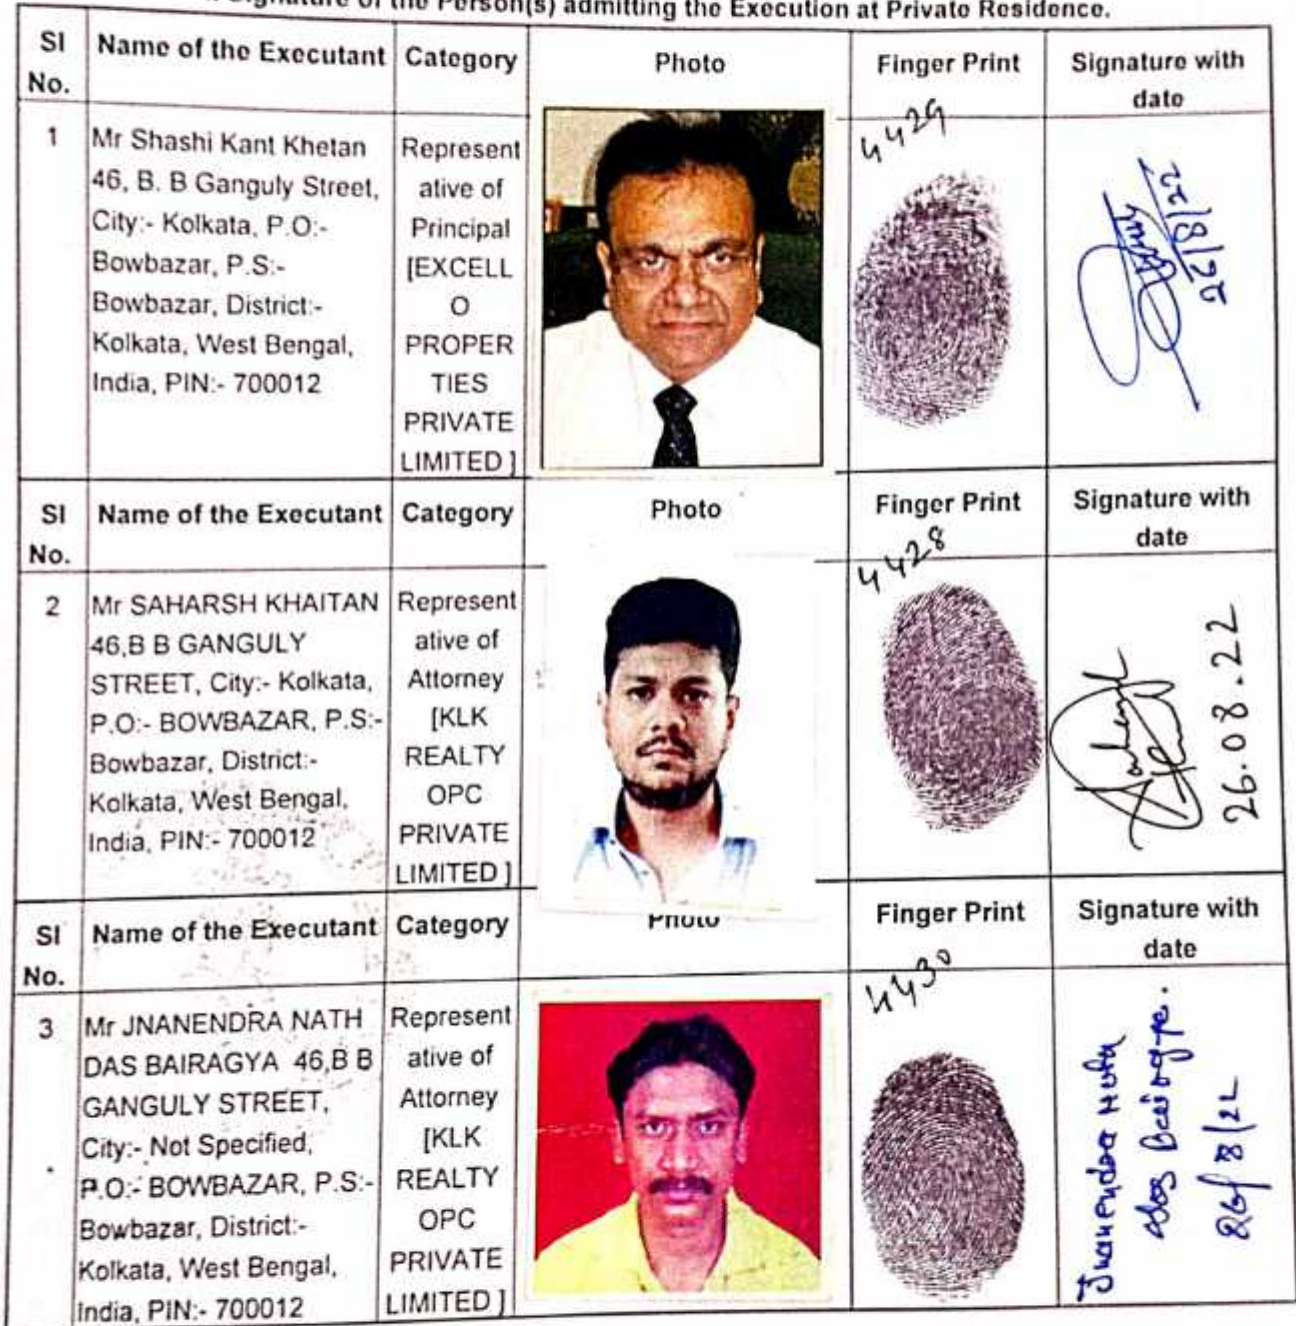 Signature of the Person(s) admitting the Execution at Private Residence.
Sl No. Name of the Executant Category Photo Finger Print Signature with date
1
Mr Shashi Kant Khetan
46, B. B Ganguly Street,
City:- Kolkata, P.O:-
Bowbazar, P.S:-
Bowbazar, District:-
Kolkata, West Bengal,
India, PIN:- 700012
Represent
ative of
Principal
[EXCELL
O
PROPER
TIES
PRIVATE
LIMITED ]
4429
26/8/22
Sl No. Name of the Executant Category Photo Finger Print Signature with date
2
Mr SAHARSH KHAITAN
46,B B GANGULY
STREET, City:- Kolkata,
P.O:- BOWBAZAR, P.S:-
Bowbazar, District:-
Kolkata, West Bengal,
India, PIN:- 700012
Represent
ative of
Attorney
[KLK
REALTY
OPC
PRIVATE
LIMITED ]
4428
26.08.22
Sl No. Name of the Executant Category Photo Finger Print Signature with date
3
Mr JNANENDRA NATH
DAS BAIRAGYA 46,B B
GANGULY STREET,
City:- Not Specified,
P.O:- BOWBAZAR, P.S:-
Bowbazar, District:-
Kolkata, West Bengal,
India, PIN:- 700012
Represent
ative of
Attorney
[KLK
REALTY
OPC
PRIVATE
LIMITED ]
4430
Jnanendra Nath
das Bairagya.
26/8/22